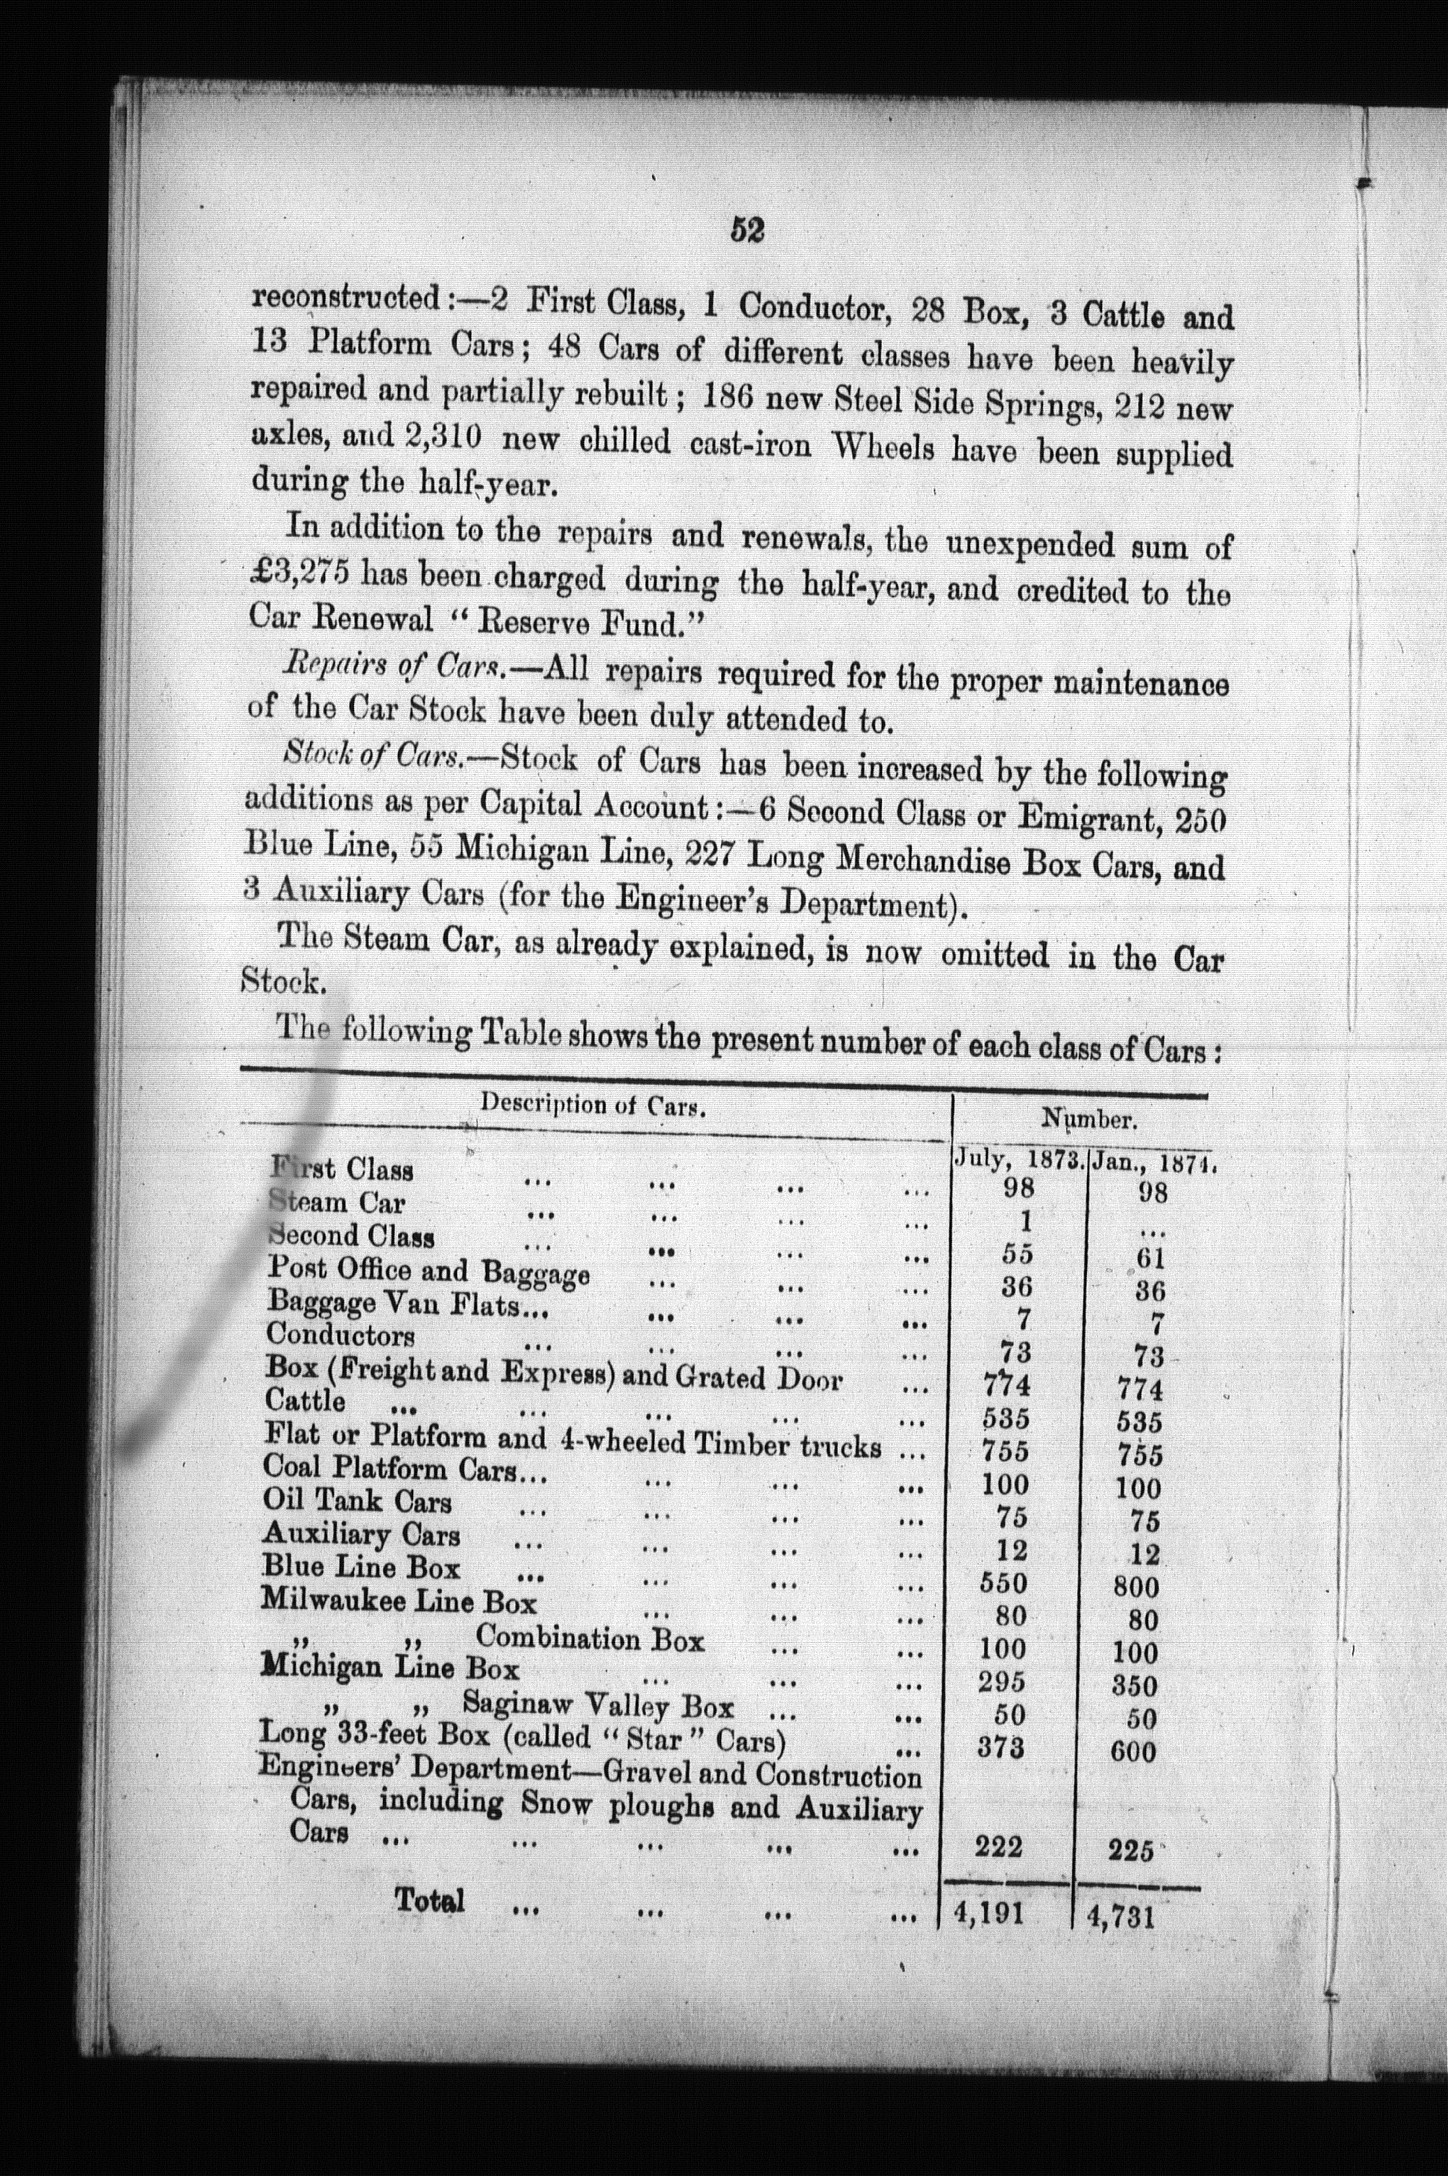 52
reconstructed :—2 First Class, 1 Conductor, 28 Box, 3 Cattle and
13 Platform Cars ; 48 Cars of different classes have been heavily
repaired and partially rebuilt ; 186 new Steel Side Springs, 212 new
axles, and 2,310 new chilled cast-iron Wheels have been supplied
during the half-year.
In addition to the repairs and renewals, the unexpended sum of
£3,275 has been charged during the half-year, and credited to the
Car Renewal “ Reserve Fund.”
Repairs of Cars.—All repairs required for the proper maintenance
of the Car Stock have been duly attended to.
Stock of Cars.—Stock of Cars has been increased by the following
additions as per Capital Account :—6 Second Class or Emigrant, 250
Blue Line, 55 Michigan Line, 227 Long Merchandise Box Cars, and
3 Auxiliary Cars (for the Engineer’s Department).
The Steam Car, as already explained, is now omitted in the Car
Stock.
The following Table shows the present number of each class of Cars :
Description of Cars. Number.
July, 1873. Jan., 1874.
First Class ... ... ... ... 98 98
Steam Car ... ... ... ... 1 ...
Second Class ... ... ... ... 55 61
Post Office and Baggage ... ... ... 36 36
Baggage Van Flats... ... ... ... 7 7
Conductors ... ... ... ... 73 73
Box (Freight and Express) and Grated Door ... 774 774
Cattle ... ... ... ... ... 535 535
Flat or Platform and 4-wheeled Timber trucks ... 755 755
Coal Platform Cars... ... ... ... 100 100
Oil Tank Cars ... ... ... ... 75 75
Auxiliary Cars ... ... ... ... 12 12
Blue Line Box ... ... ... ... 550 800
Milwaukee Line Box ... ... ... 80 80
„ „ Combination Box ... ... 100 100
Michigan Line Box ... ... ... 295 350
„ „ Saginaw Valley Box ... ... 50 50
Long 33-feet Box (called “ Star ” Cars) ... 373 600
Engineers’ Department—Gravel and Construction
Cars, including Snow ploughs and Auxiliary
Cars ... ... ... ... ... 222 225
Total ... ... ... ... 4,191 4,731